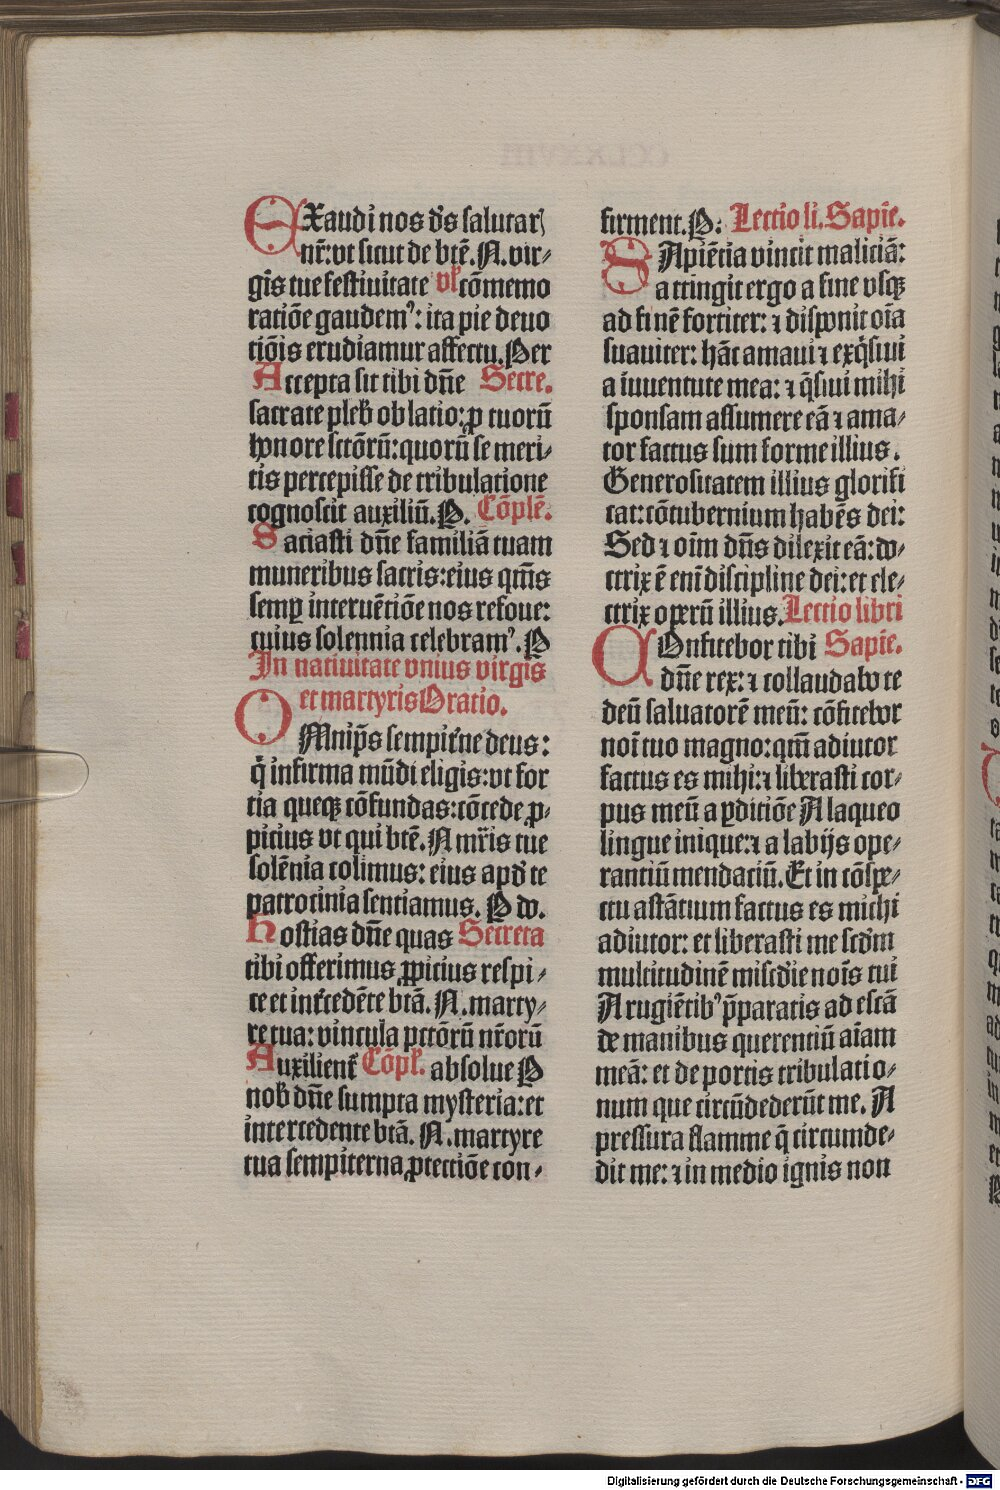 EXaudi nos ds̄ salutar̄
nr̄: vt sicut de btē. N. vir-
gīs tue festiuitate vl̄ cōmemo
ratiōe gaudemꝰ: ita pie deuo
tiōis erudiamur affectu. Per
Accepta sit tibi dn̄e Secre.
sacrate pleb̄ oblatio: ꝓ tuorū
honore sctōrū: quorū se meri-
tis percepisse de tribulatione
cognoscit auxiliū. P. Cōplē.
Saciasti dn̄e familiā tuam
muneribus sacris: eius qm̄s
semꝑ interuētiōe nos refoue:
cuius solennia celebramꝰ. P
In natiuitate vnius virgīs
et martyris Oratio.
OMnip̄s sempit̄ne deus:
q̄ infirma mūdi eligis: vt for
tia queqꝫ cōfundas: cōcede ꝓ-
picius vt qui btē. N mr̄is tue
solēnia colimus: eius apd̄ te
patrocinia sentiamus. P do.
Hostias dn̄e quas Secreta
tibi offerimus ꝓpicius respi-
ce et int̄cedēte btā. N. marty-
re tua: vincula pctōrū nr̄orū
Auxilient̄ Cōpl̄. absolue P
nob̄ dn̄e sumpta mysteria: et
intercedente btā. N. martyre
tua sempiterna ꝓtectiōe con-
firment. P: Lectio li. Sapīe.
SApiētia vincit maliciā:
attingit ergo a fine vsqꝫ
ad finē fortiter: ⁊ disponit oīa
suauiter: hāc amaui ⁊ exq̄siui
a iuuentute mea: ⁊ q̄siui mihi
sponsam assumere eā ⁊ ama-
tor factus sum forme illius.
Generositatem illius glorifi
cat: cōtubernium habēs dei:
Sed ⁊ oīm dn̄s dilexit eā: do-
ctrix ē enī discipline dei: et ele-
ctrix operū illius. Lectio libri
COnfitebor tibi Sapīe.
dn̄e rex: ⁊ collaudabo te
deū saluatorē meū: cōfitebor
noī tuo magno: qm̄ adiutor
factus es mihi: ⁊ liberasti cor-
pus meū a ꝑditiōe A laqueo
lingue inique: ⁊ a labijs ope-
rantiū mendaciū. Et in cōspe-
ctu astātium factus es michi
adiutor: et liberasti me scd̄m
multitudinē miscd̄ie noīs tui
A rugiētibꝰ p̄paratis ad escā
de manibus querentiū aīam
meā: et de portis tribulatio-
num que circūdederūt me. A
pressura flamme q̄ circumde-
dit me: ⁊ in medio ignis non
Digitalisierung gefördert durch die Deutsche Forschungsgemeinschaft - DFG